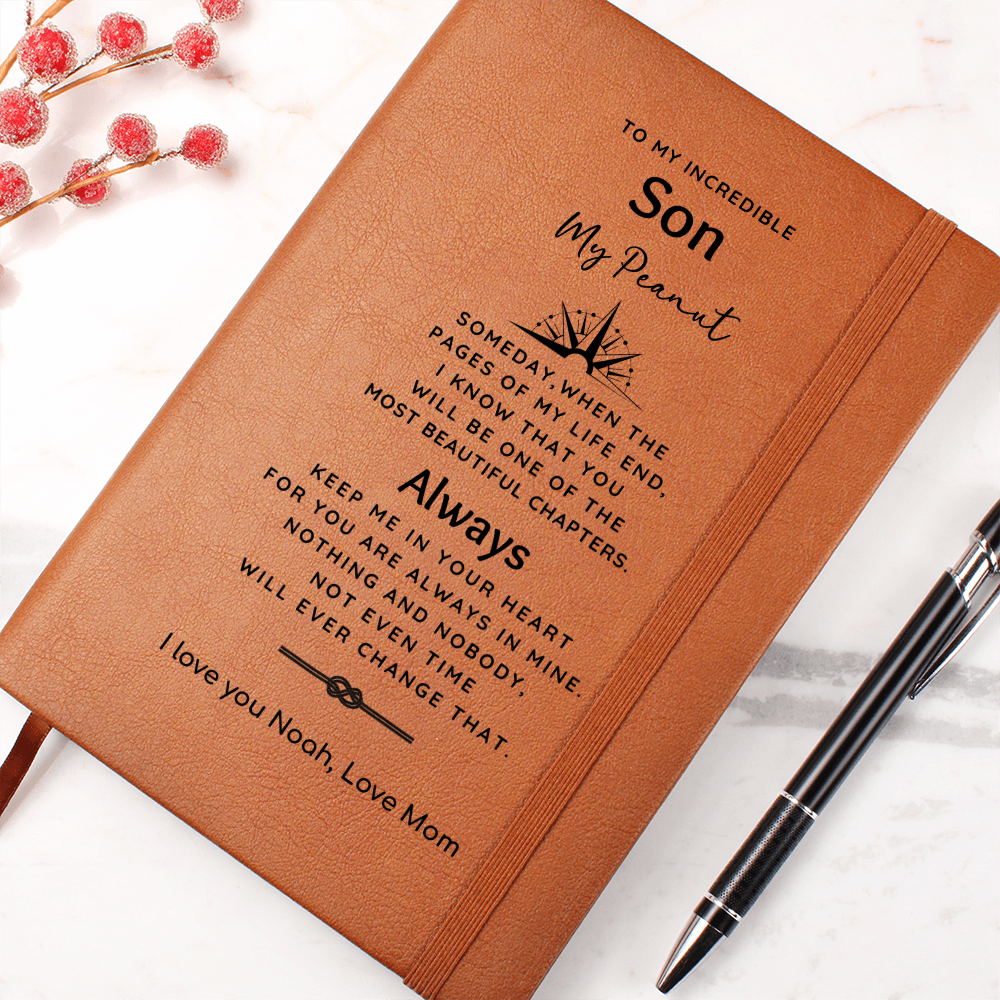 TO MY INCREDIBLE
Son
My Peanut
SOMEDAY, WHEN THE
PAGES OF MY LIFE END,
I KNOW THAT YOU
WILL BE ONE OF THE
MOST BEAUTIFUL CHAPTERS.
Always
KEEP ME IN YOUR HEART
FOR YOU ARE ALWAYS IN MINE.
NOTHING AND NOBODY,
NOT EVEN TIME
WILL EVER CHANGE THAT.
I love you Noah, Love Mom